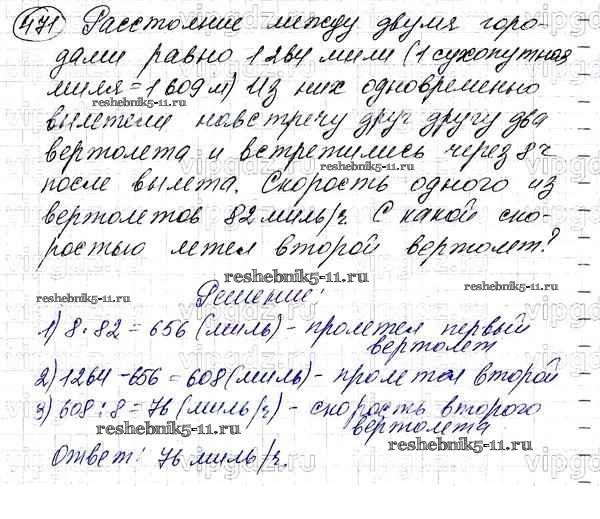 471 Расстояние между двумя горо-
дами равно 1264 мили (1 сухопутная
миля = 1 609 м) Из них одновременно
вылетели навстречу друг другу два
вертолета и встретились через 8 ч
после вылета. Скорость одного из
вертолетов 82 миль/ч. С какой ско-
ростью летел второй вертолет?
Решение:
1) 8 · 82 = 656 (миль) - пролетел первый
вертолет
2) 1264 - 656 = 608 (миль) - пролетел второй
3) 608 : 8 = 76 (миль/ч) - скорость второго
вертолета
Ответ: 76 миль/ч.
reshebnik5-11.ru
reshebnik5-11.ru
reshebnik5-11.ru
reshebnik5-11.ru
reshebnik5-11.ru
reshebnik5-11.ru